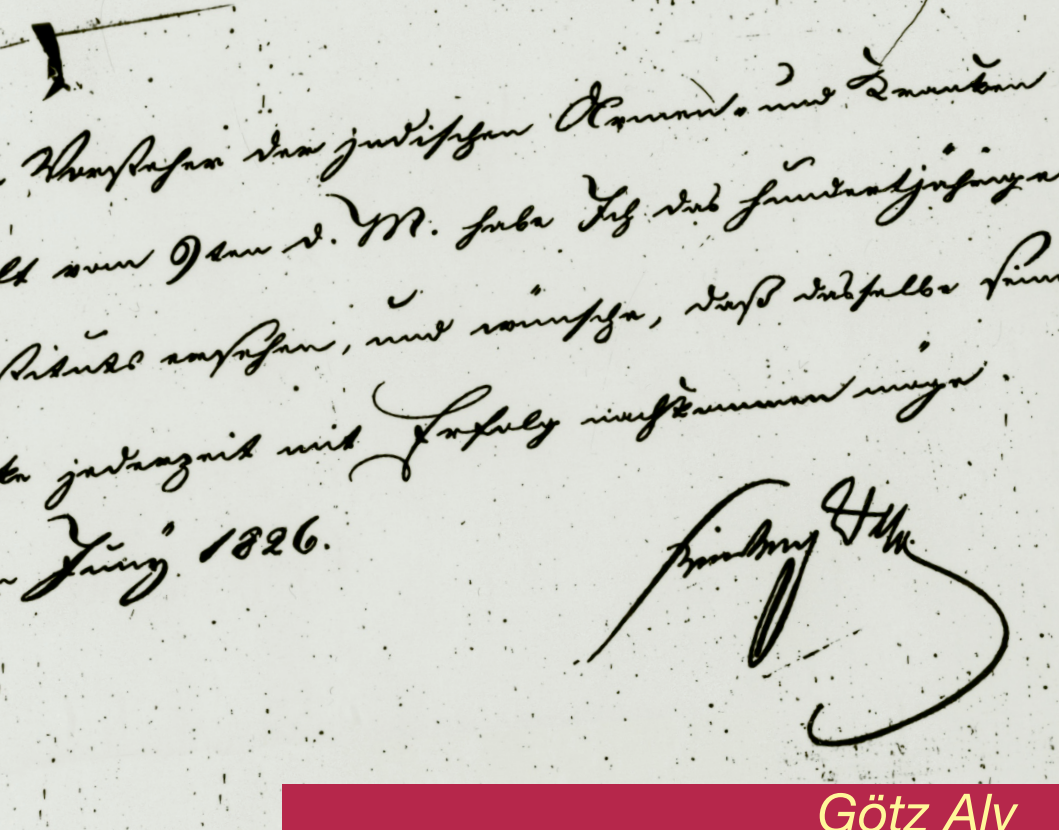 Vorsteher der jüdischen Armen- und Kranken
lt vom 9ten d. M. habe Ich das hundertjährige
stituts ersehen, und wünsche, daß dasselbe sein
ke jederzeit mit Erfolg nachkommen möge.
n Juny 1826.
Götz Aly